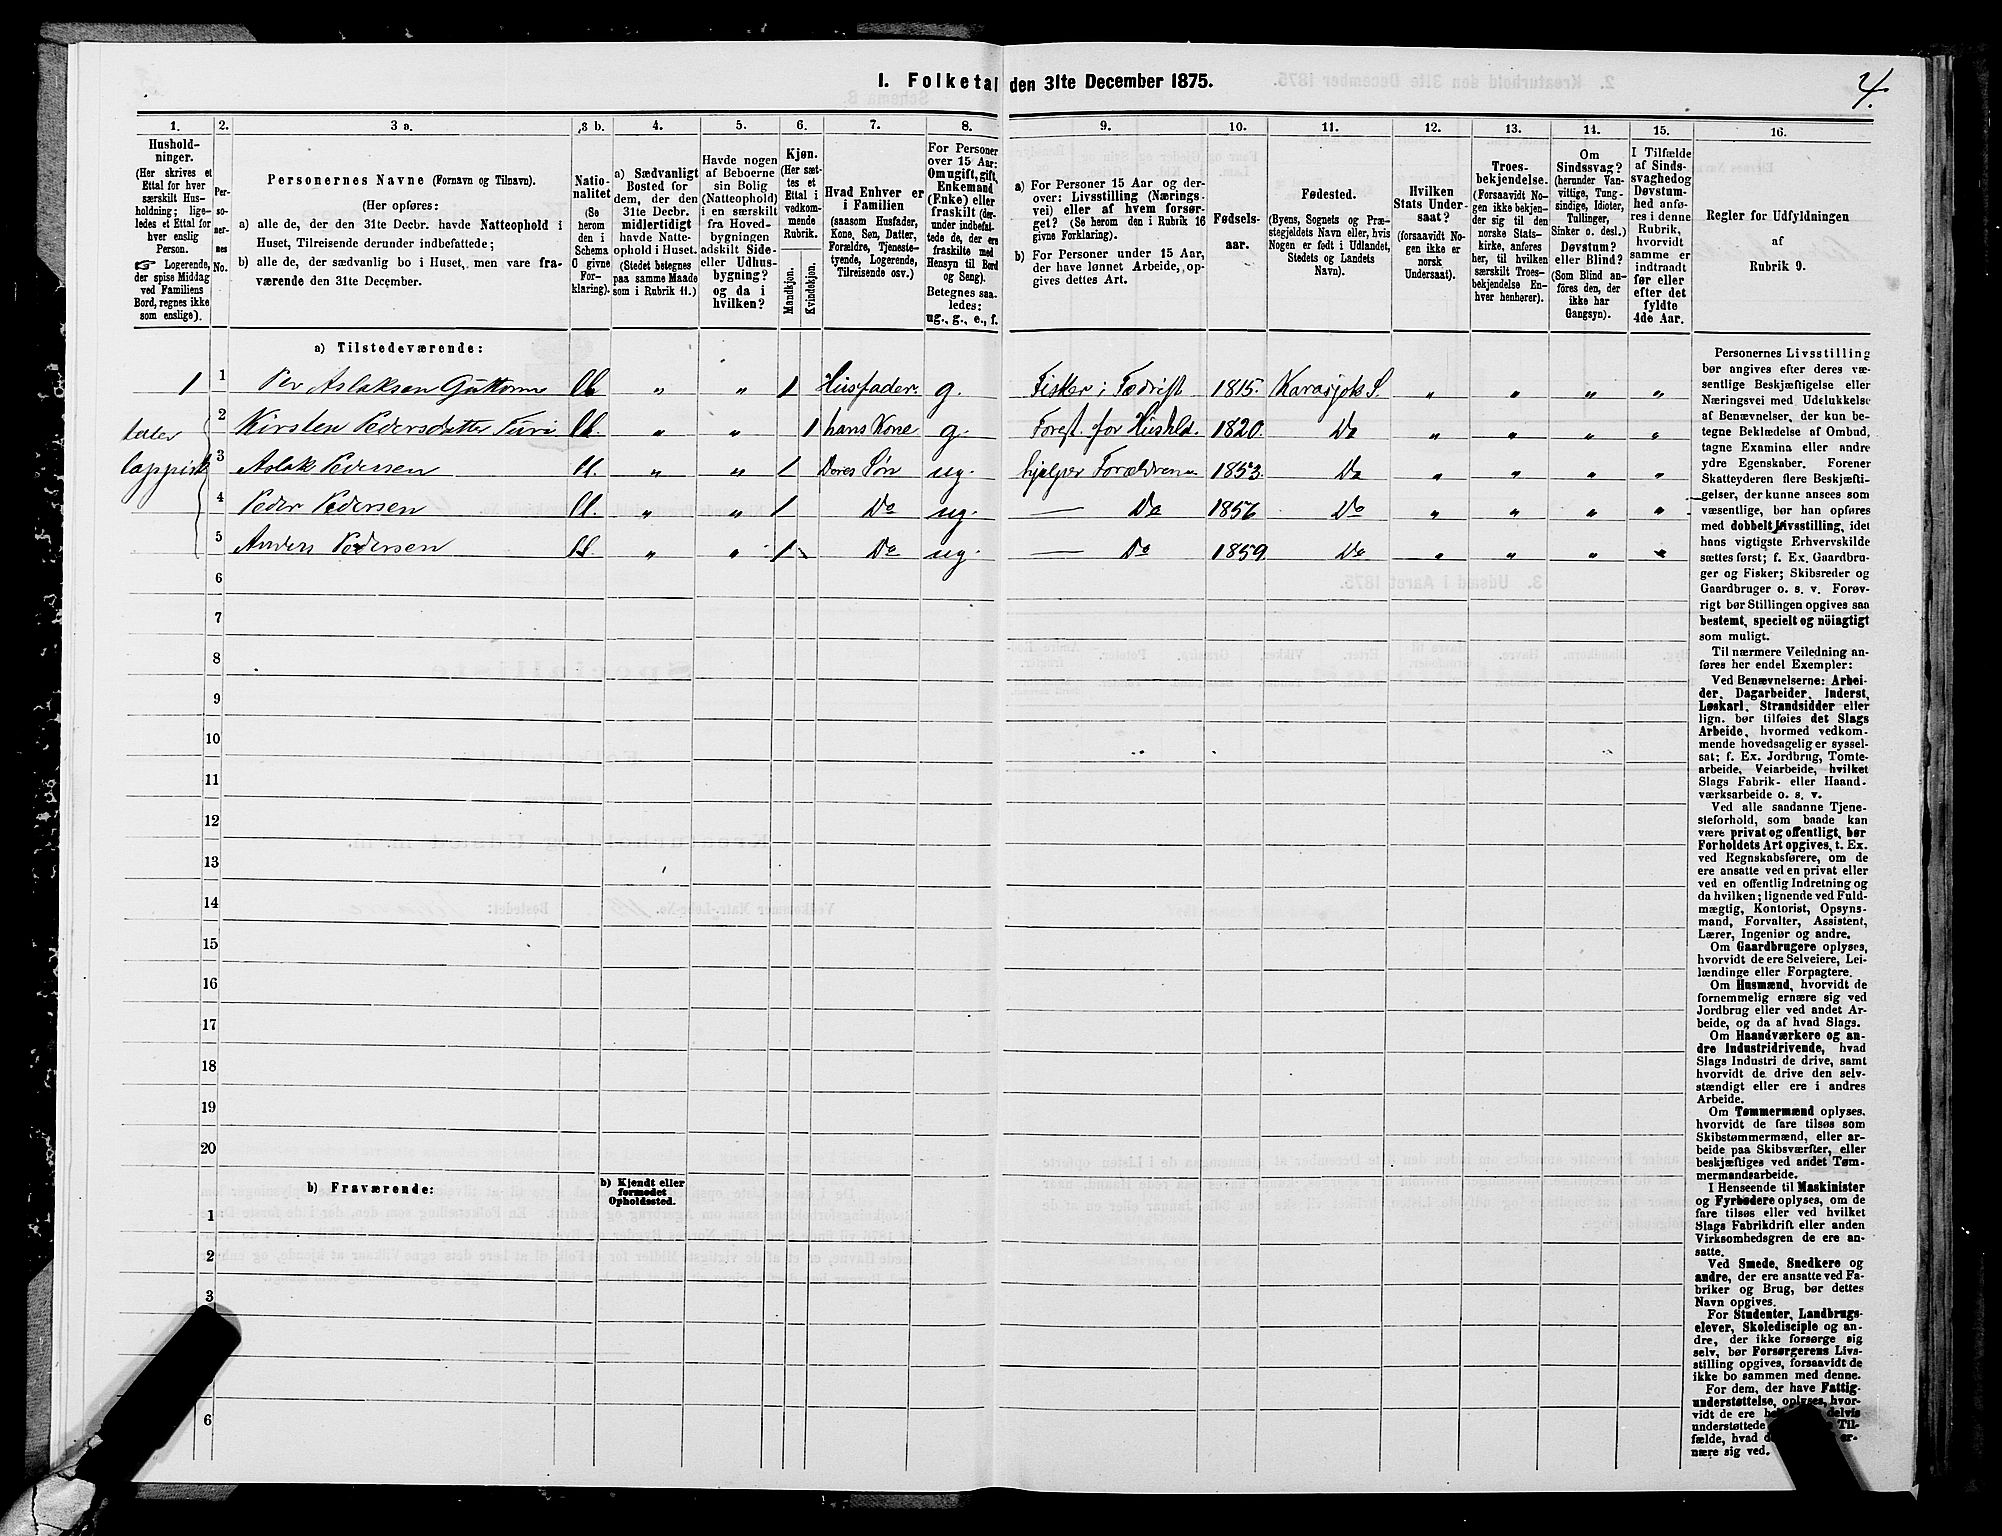 1. Folketal den 31te December 1875.
4.
1.
Hushold-
ninger.
(Her skrives et
Ettal for hver
særskilt Hus-
holdning; lige-
ledes et Ettal for
hver enslig
Person.
☞ Logerende,
der spise Middag
ved Familiens
Bord, regnes ikke
som enslige).
2.
Per-
so-
ner-
nes
No.
3 a.
Personernes Navne (Fornavn og Tilnavn).
(Her opføres:
a) alle de, der den 31te Decbr. havde Natteophold i
Huset, Tilreisende derunder indbefattede;
b) alle de, der sædvanlig bo i Huset, men vare fra-
værende den 31te December.
3 b.
Natio-
nalitet
(Se
herom
den i
Schema
O givne
For-
klaring).
4.
a) Sædvanligt
Bosted for
dem, der den
31te Decbr.
midlertidigt
havde Natte-
ophold i Huset.
(Stedet betegnes
paa samme Maade
som i Rubrik 11.)
5.
Havde nogen
af Beboerne
sin Bolig
(Natteophold)
i en særskilt
fra Hoved-
bygningen
adskilt Side-
eller Udhus-
bygning?
og da i
hvilken?
6.
Kjøn.
(Her sæt-
tes et
Ettal i
vedkom-
mende
Rubrik.
Mandkjøn.
Kvindekjøn.
7.
Hvad Enhver er
i Familien
(saasom Husfader,
Kone, Søn, Datter,
Forældre, Tjeneste-
tyende, Logerende,
Tilreisende osv.)
8.
For Personer
over 15 Aar:
Om ugift, gift,
Enkemand
(Enke) eller
fraskilt (der-
under indbefat-
tede de, der ere
fraskilte med
Hensyn til Bord
og Seng).
Betegnes saa-
ledes:
ug., g., e., f.
9.
a) For Personer 15 Aar og der-
over: Livsstilling (Nærings-
vei) eller af hvem forsør-
get? (Se herom den i Rubrik 16
givne Forklaring).
b) For Personer under 15 Aar,
der have lønnet Arbeide, op-
gives dettes Art.
10.
Fødsels-
aar.
11.
Fødested.
(Byens, Sognets og Præ-
stegjeldets Navn eller, hvis
Nogen er født i Udlandet,
Stedets og Landets
Navn).
12.
Hvilken
Stats Under-
saat?
(forsaavidt No-
gen ikke er
norsk
Undersaat).
13.
Troes-
bekjendelse.
(Forsaavidt No-
gen ikke bekjen-
der sig til den
norske Stats-
kirke, anføres
her, til hvilken
særskilt Troes-
bekjendelse En-
hver henhører).
14.
Om
Sindssvag?
(herunder Van-
vittige, Tung-
sindige, Idioter,
Tullinger,
Sinker o. desl.)
Døvstum?
eller Blind?
(Som Blind an-
føres den, der
ikke har
Gangsyn).
15.
I Tilfælde
af Sinds-
svaghed og
Døvstum-
hed anfø-
res i denne
Rubrik,
hvorvidt
samme er
indtraadt
før eller
efter det
fyldte
4de Aar.
16.
Regler for Udfyldningen
af
Rubrik 9.
a) Tilstedeværende:
1 1 Per Aslaksen Guttorm " " 1 Husfader. g. Fisker i Fædrift 1815. Karasjok S. " " " "
taler
2 Kirsten Pedersdatter Turi " " 1 hans Kone g. Forest. for Hushld. 1820. Do " " " "
lappisk
3 Aslak Pedersen " " 1 Deres Søn ug. hjelper Forældrene 1853. Do " " " "
4 Peder Pedersen " " 1 Do ug. — Do 1856 Do " " " "
5 Anders Pedersen " " 1 Do ug. — Do 1859. Do " " " "
6
7
8
9
10
11
12
13
14
15
16
17
18
19
20
b) Fraværende:
b) Kjendt eller
formodet
Opholdssted.
1
2
3
6
Personernes Livsstilling
bør angives efter deres væ-
sentlige Beskjæftigelse eller
Næringsvei med Udelukkelse
af Benævnelser, der kun be-
tegne Beklædelse af Ombud,
tagne Examina eller andre
ydre Egenskaber. Forener
Skatteyderen flere Beskjæfti-
gelser, der kunne ansees som
væsentlige, bør han opføres
med dobbelt Livsstilling, idet
hans vigtigste Erhvervskilde
sættes først; f. Ex. Gaardbru-
ger og Fisker; Skibsreder og
Gaardbruger o. s. v. Forøv-
rigt bør Stillingen opgives saa
bestemt, specielt og nöiagtigt
som muligt.
Til nærmere Veiledning an-
føres her endel Exempler:
Ved Benævnelserne: Arbei-
der, Dagarbeider, Inderst,
Løskarl, Strandsidder eller
lign. bør tilføies det Slags
Arbeide, hvormed vedkom-
mende hovedsagelig er syssel-
sat; f. Ex. Jordbrug, Tomte-
arbeide, Veiarbeide, hvilket
Slags Fabrik- eller Haand-
værksarbeide o. s. v.
Ved alle saadanne Tjene-
steforhold, som baade kan
være privat og offentligt, bør
Forholdets Art opgives, t. Ex.
ved Regnskabsførere, om de
ere ansatte ved en privat eller
ved en offentlig Indretning og
da hvilken; lignende ved Fuld-
mægtig, Kontorist, Opsyns-
mand, Forvalter, Assistent,
Lærer, Ingeniør og andre.
Om Gaardbrugere oplyses,
hvorvidt de ere Selveiere, Lei-
lændinge eller Forpagtere.
Om Husmænd, hvorvidt de
fornemmelig ernære sig ved
Jordbrug eller ved andet Ar-
beide, og da af hvad Slags.
Om Haandværkere og an-
dre Industridrivende, hvad
Slags Industri de drive, samt
hvorvidt de drive den selv-
stændigt eller ere i andres
Arbeide.
Om Tømmermænd oplyses,
hvorvidt de fare tilsøs som
Skibstømmermænd, eller ar-
beide paa Skibsværfter, eller
beskjæftiges ved andet Tøm-
mermandsarbeide.
I Henseende til Maskinister
og Fyrbødere oplyses, om de
fare tilsøs eller ved hvilket
Slags Fabrikdrift eller anden
Virksomhedsgren de ere an-
satte.
Ved Smede, Snedkere og
andre, der ere ansatte ved Fa-
briker og Brug, bør dettes
Navn opgives.
For Studenter, Landbrugs-
elever, Skoledisciple og an-
dre, der ikke forsørge sig
selv, bør Forsørgerens Livs-
stilling opgives, forsaavidt de
ikke bo sammen med denne.
For dem, der have Fattig-
understøttelse, oplyses, hvor-
vidt de ere delvis
understøttede Til-
fælde, hvad er-
nære sig ved.